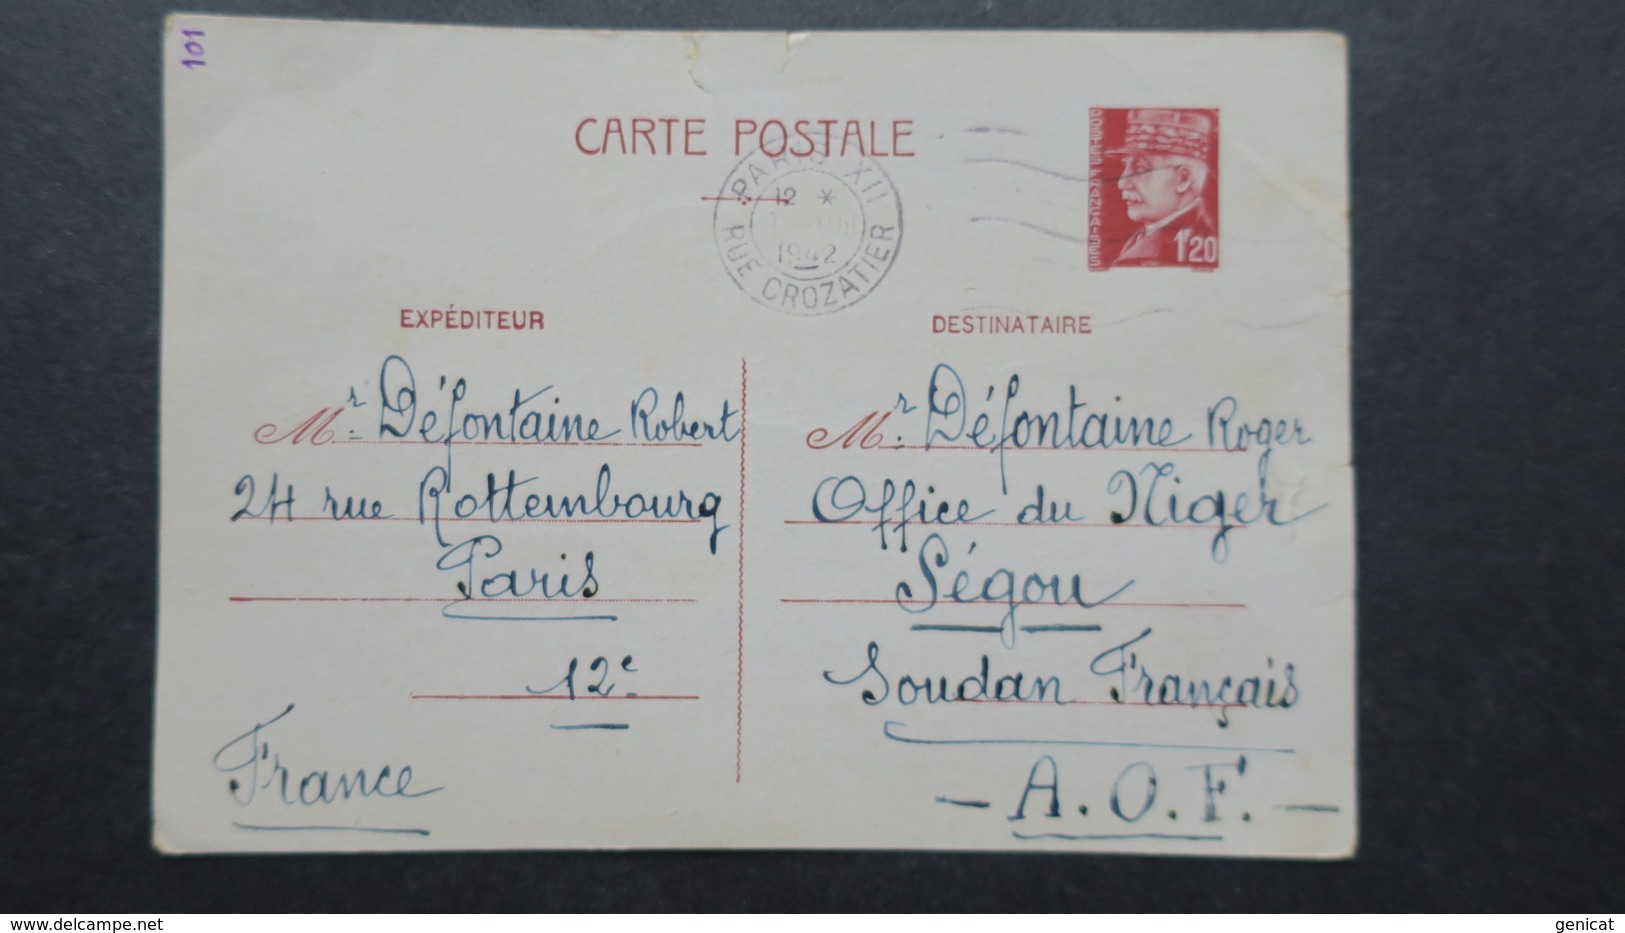 101
CARTE POSTALE
POSTES FRANÇAISES
1F20
PARIS XII
12 *
1942
RUE CROZATIER
EXPÉDITEUR
Mr. Défontaine Robert
24 rue Rottembourg
Paris
12e
France
DESTINATAIRE
Mr. Défontaine Roger
Office du Niger
Ségou
Soudan Français
- A. O. F. -
www.delcampe.net
genicat